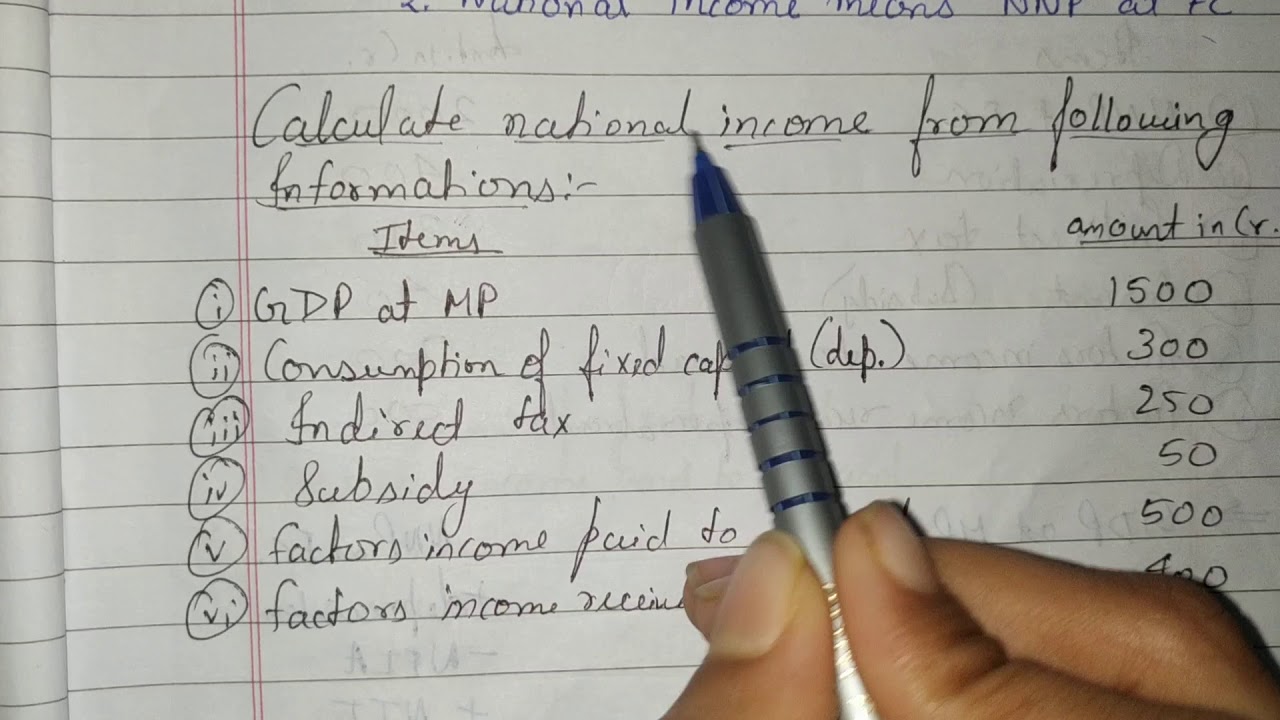 2. National income means NNP at FC
Calculate national income from following
Informations:-
Items amount in Cr.
(i) GDP at MP 1500
(ii) Consumption of fixed (dep.) 300
(iii) Indirect tax 250
(iv) Subsidy 50
(v) factors income paid to 500
(vi) factors income 400